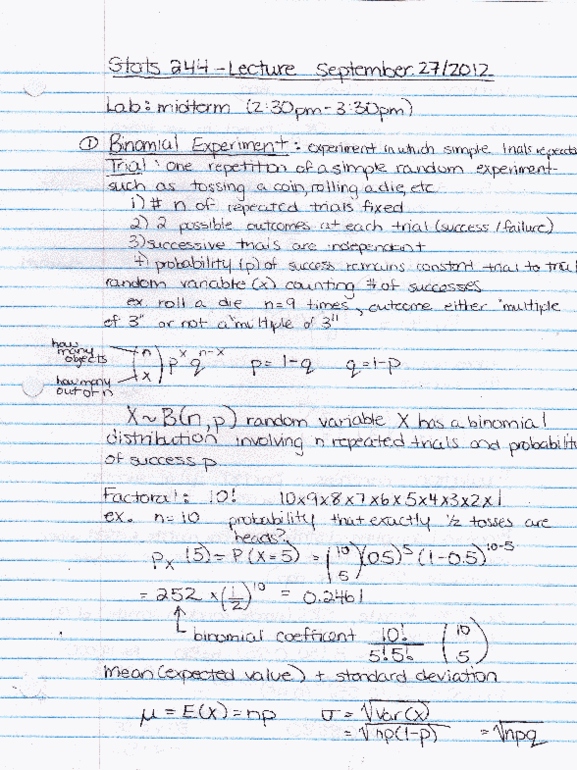 Stats 244 - Lecture September 27/2012
Lab: midterm (2:30pm-3:30pm)
① Binomial Experiment: experiment in which simple trials repeats
Trial: one repetition of a simple random experiment
such as tossing a coin, rolling a die, etc
1) # n of repeated trials fixed
2) 2 possible outcomes at each trial (success/failure)
3) successive trials are independent
4) probability (p) of success remains constant trial to trial
random variable (x) counting # of successes
ex. roll a die n=9 times, outcome either "multiple
of 3" or not a "multiple of 3"
how many objects
how many out of n
(n x) p^x q^n-x p=1-q q=1-p
X~B(n,p) random variable X has a binomial
distribution involving n repeated trials and probabilit
of success p.
Factoral: 10! 10x9x8x7x6x5x4x3x2x1
ex. n=10 probability that exactly 1/2 tosses are
heads?
Px(5) = P(X=5) = (10 5)(0.5)^5 (1-0.5)^10-5
= 252 x (1/2)^10 = 0.2461
binomial coefficent 10!/5!5! (10 5)
mean (expected value) + standard deviation
μ = E(X) = np σ = √Var(X)
= √np(1-p) = √npq